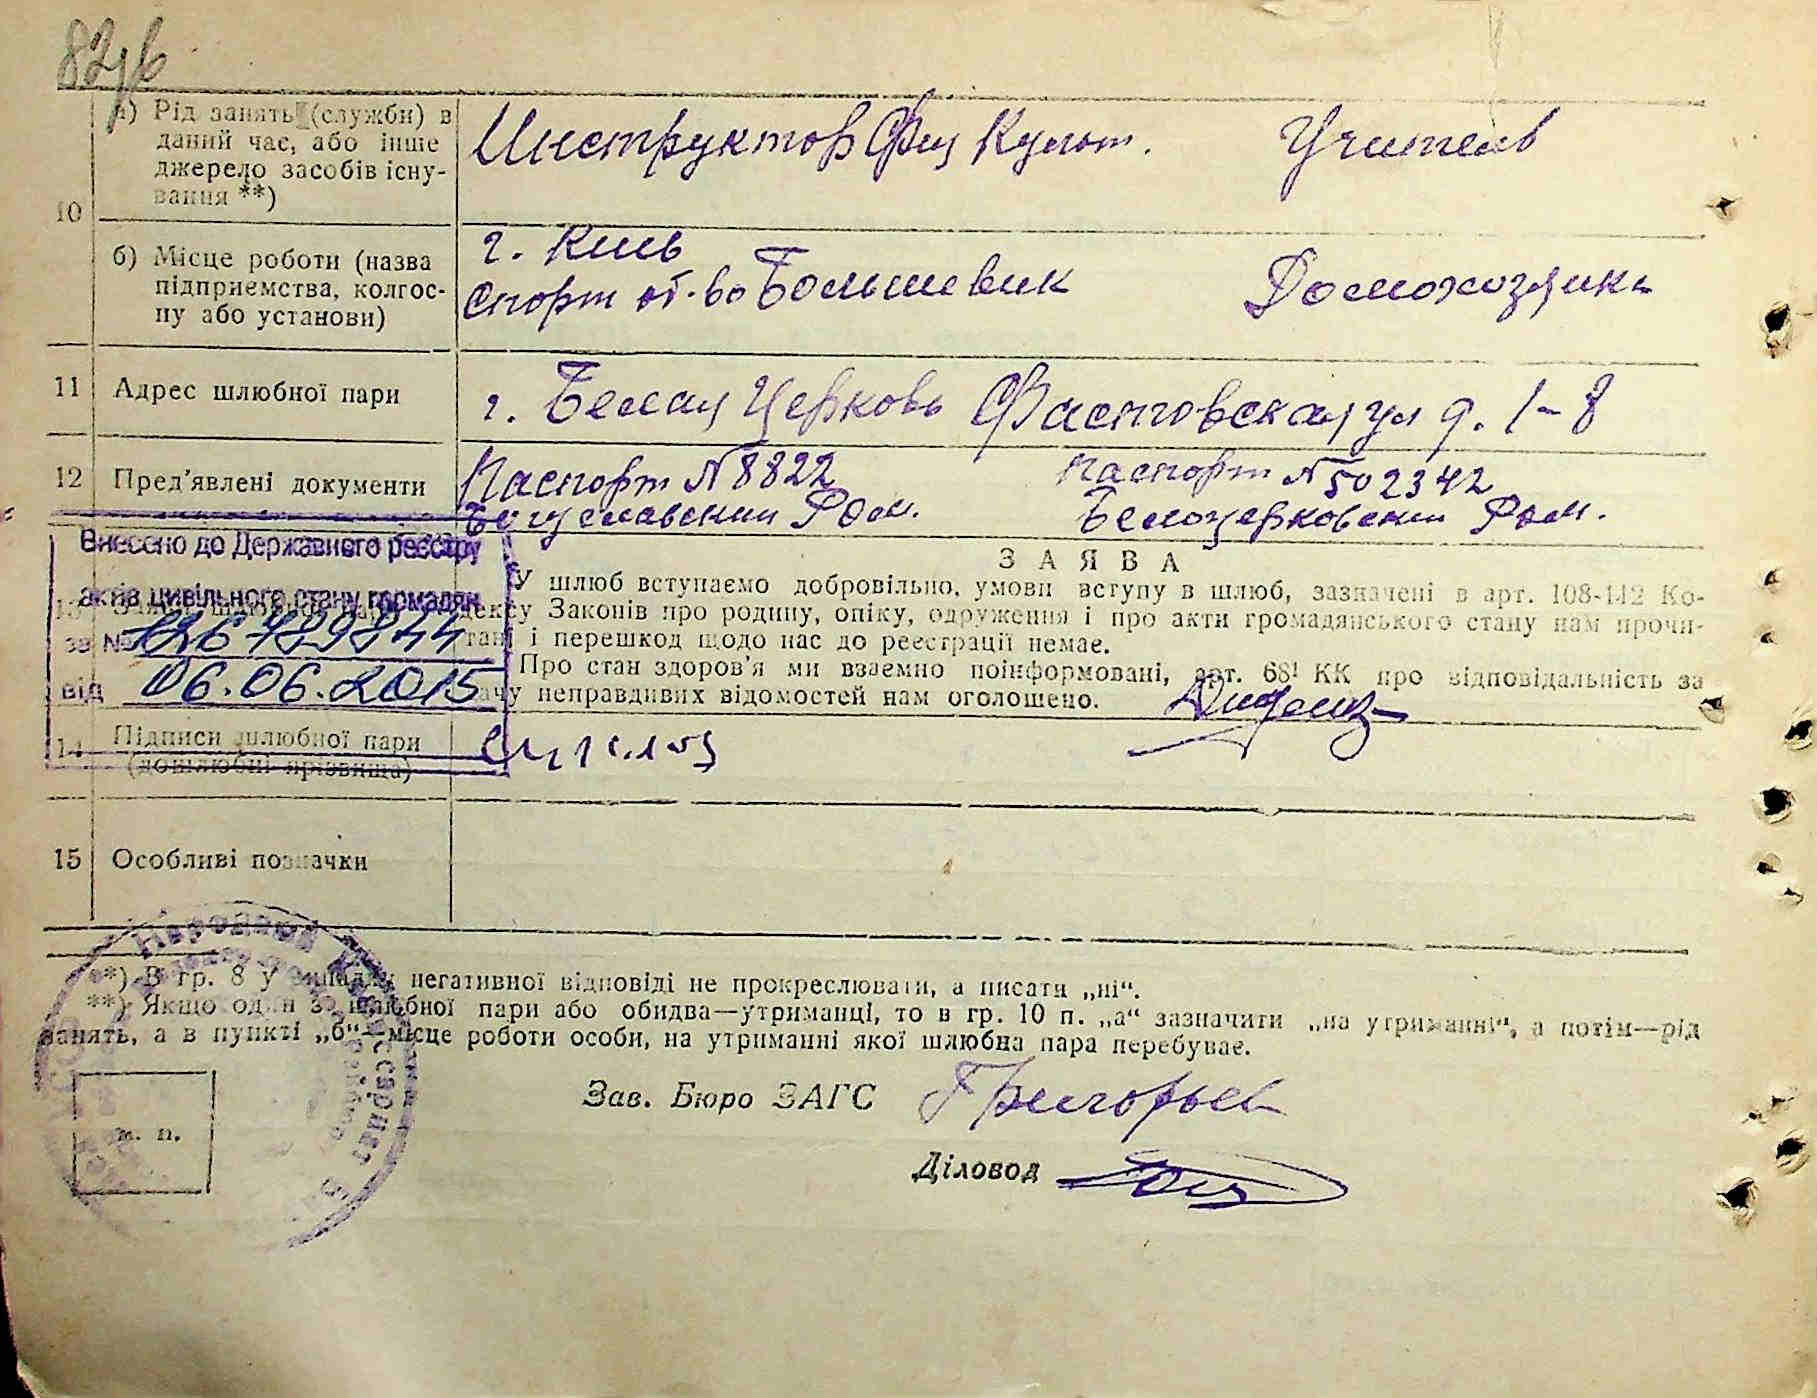 82
10
а) Рід занять (служби) в
даний час, або інше
джерело засобів існу-
вання **)
Инструктор Физ Культ. Учитель
б) Місце роботи (назва
підприємства, колгос-
пу або установи)
г. Киев
Спорт об-во Большевик Домохозяика
11 Адрес шлюбної пари
г. Белая Церковь Фастовская ул д. 1-8
12 Пред'явлені документи
Паспорт № 8822 Паспорт № 502342
Богуславским Ром. Белоцерковским Ром.
Внесено до Державного реєстру
актів цивільного стану громадян
за № 126789844
від 06.06.2015
ЗАЯВА
У шлюб вступаємо добровільно, умови вступу в шлюб, зазначені в арт. 108-112 Ко-
дексу Законів про родину, опіку, одруження і про акти громадянського стану нам прочи-
тані і перешкод щодо нас до реєстрації немає.
Про стан здоров'я ми взаємно поінформовані, арт. 68¹ КК про відповідальність за
дачу неправдивих відомостей нам оголошено.
14 Підписи шлюбної пари
(довілюбні прізвища)
15 Особливі позначки
*) В гр. 8 у випадку негативної відповіді не прокреслювати, а писати „ні“.
**) Якщо один з шлюбної пари або обидва—утриманці, то в гр. 10 п. „а“ зазначити „на утриманні“, а потім—рід
занять, а в пункті „б“—місце роботи особи, на утриманні якої шлюбна пара перебуває.
Зав. Бюро ЗАГС Григорьев
Діловод
м. п.